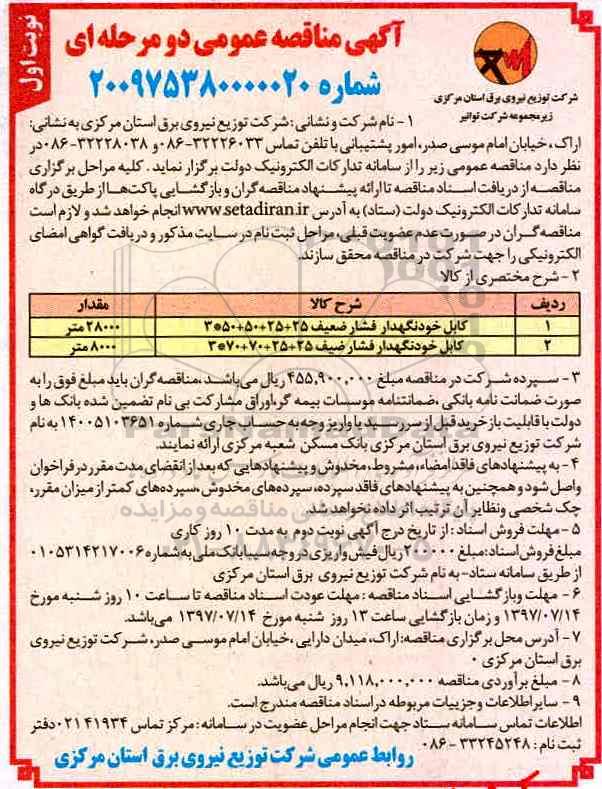 نوبت اول
آگهی مناقصه عمومی دو مرحله ای
شماره ۲۰۰۹۷۵۳۸۰۰۰۰۰۲۰
شرکت توزیع نیروی برق استان مرکزی
زیرمجموعه شرکت توانیر
۱- نام شرکت و نشانی : شرکت توزیع نیروی برق استان مرکزی به نشانی:
اراک، خیابان امام موسی صدر، امور پشتیبانی با تلفن تماس ۳۲۲۲۶۰۳۳-۰۸۶ و ۳۲۲۲۸۰۳۸-۰۸۶ در
نظر دارد مناقصه عمومی زیر را از سامانه تدارکات الکترونیک دولت برگزار نماید . کلیه مراحل برگزاری
مناقصه از دریافت اسناد مناقصه تا ارائه پیشنهاد مناقصه گران و بازگشایی پاکت‌ها از طریق درگاه
سامانه تدارکات الکترونیک دولت (ستاد) به آدرس www.setadiran.ir انجام خواهد شد و لازم است
مناقصه گران در صورت عدم عضویت قبلی، مراحل ثبت نام در سایت مذکور و دریافت گواهی امضای
الکترونیکی را جهت شرکت در مناقصه محقق سازند.
۲- شرح مختصری از کالا
ردیف شرح کالا مقدار
۱ کابل خودنگهدار فشار ضعیف ۲۵+۲۵+۵۰+۵۰*۳ ۲۸۰۰۰ متر
۲ کابل خودنگهدار فشار ضیف ۲۵+۲۵+۷۰+۷۰*۳ ۸۰۰۰ متر
۳- سپرده شرکت در مناقصه مبلغ ۴۵۵,۹۰۰,۰۰۰ ریال می‌باشد، مناقصه گران باید مبلغ فوق را به
صورت ضمانت نامه بانکی ،ضمانتنامه موسسات بیمه گر،اوراق مشارکت بی نام تضمین شده بانک ها و
دولت با قابلیت بازخرید قبل از سررسید یا واریز وجه به حساب جاری شماره ۱۴۰۰۵۱۰۳۶۵۱ به نام
شرکت توزیع نیروی برق استان مرکزی بانک مسکن شعبه مرکزی ارائه نمایند.
۴- به پیشنهادهای فاقد امضاء، مشروط، مخدوش و پیشنهادهایی که بعد از انقضای مدت مقرر در فراخوان
واصل شود و همچنین به پیشنهادهای فاقد سپرده، سپرده‌های مخدوش، سپرده‌های کمتر از میزان مقرر،
چک شخصی ونظایر آن ترتیب اثر داده نخواهد شد.
۵- مهلت فروش اسناد : از تاریخ درج آگهی نوبت دوم به مدت ۱۰ روز کاری
مبلغ فروش اسناد :مبلغ ۲۰۰۰۰۰ ریال فیش واریزی در وجه سیبا بانک ملی به شماره ۰۱۰۵۳۱۴۲۱۷۰۰۶
از طریق سامانه ستاد- به نام شرکت توزیع نیروی برق استان مرکزی
۶- مهلت وبازگشایی اسناد مناقصه : مهلت عودت اسناد مناقصه تا ساعت ۱۰ روز شنبه مورخ
۱۳۹۷/۰۷/۱۴ و زمان بازگشایی ساعت ۱۳ روز شنبه مورخ ۱۳۹۷/۰۷/۱۴ می‌باشد.
۷- آدرس محل برگزاری مناقصه:اراک، میدان دارایی ،خیابان امام موسی صدر، شرکت توزیع نیروی
برق استان مرکزی .
۸- مبلغ برآوردی مناقصه ۹,۱۱۸,۰۰۰,۰۰۰ ریال می‌باشد.
۹- سایر اطلاعات وجزییات مربوطه در اسناد مناقصه مندرج است.
اطلاعات تماس سامانه ستاد جهت انجام مراحل عضویت در سامانه : مرکز تماس ۴۱۹۳۴-۰۲۱ دفتر
ثبت نام : ۳۳۲۴۵۲۴۸-۰۸۶
روابط عمومی شرکت توزیع نیروی برق استان مرکزی